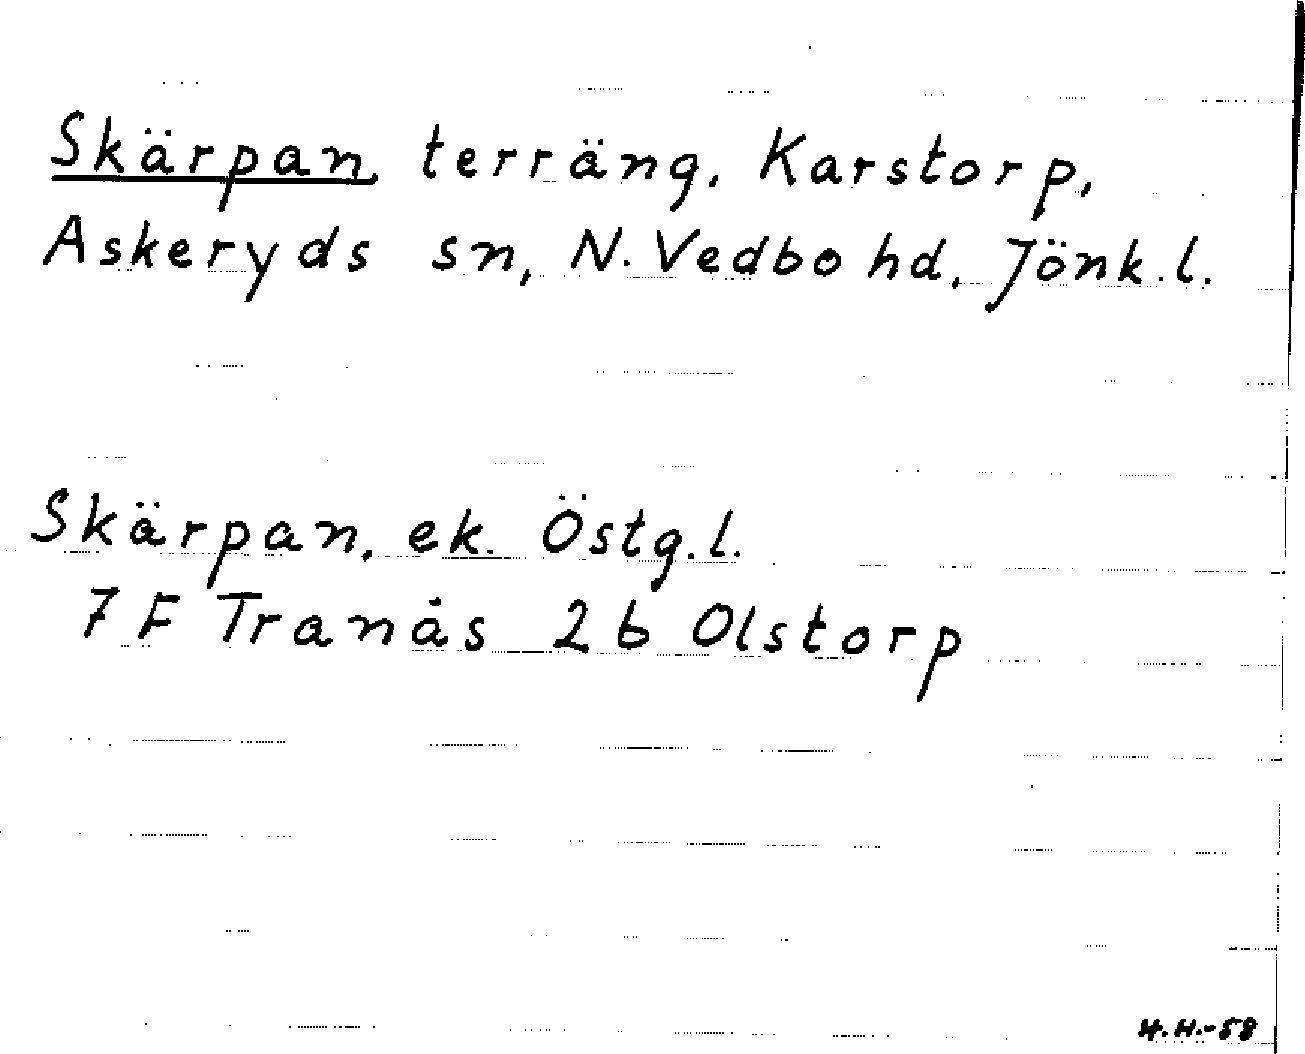 Skärpan, terräng, Karstorp,
Askeryds sn, N. Vedbo hd, Jönk. l.
Skärpan, ek. Östg. l.
7 F Tranås 2 b Olstorp
H. H. -58